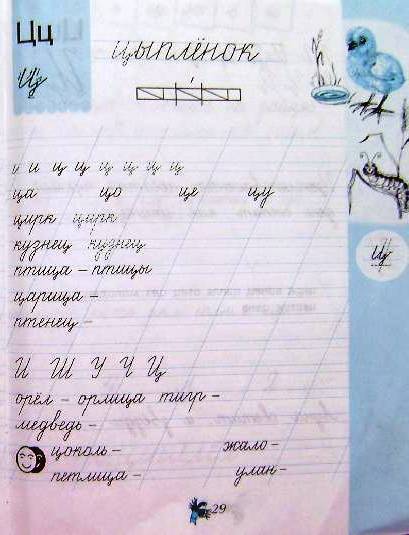 Цц
Цц
цыплёнок
и и ц ц ц ц ц ц
ца цо це цу
цирк цирк
кузнец кузнец
птица – птицы
царица –
птенец –
И Ш У Ч Ц
орёл – орлица тигр –
медведь –
цоколь – жало –
петлица – улан –
29